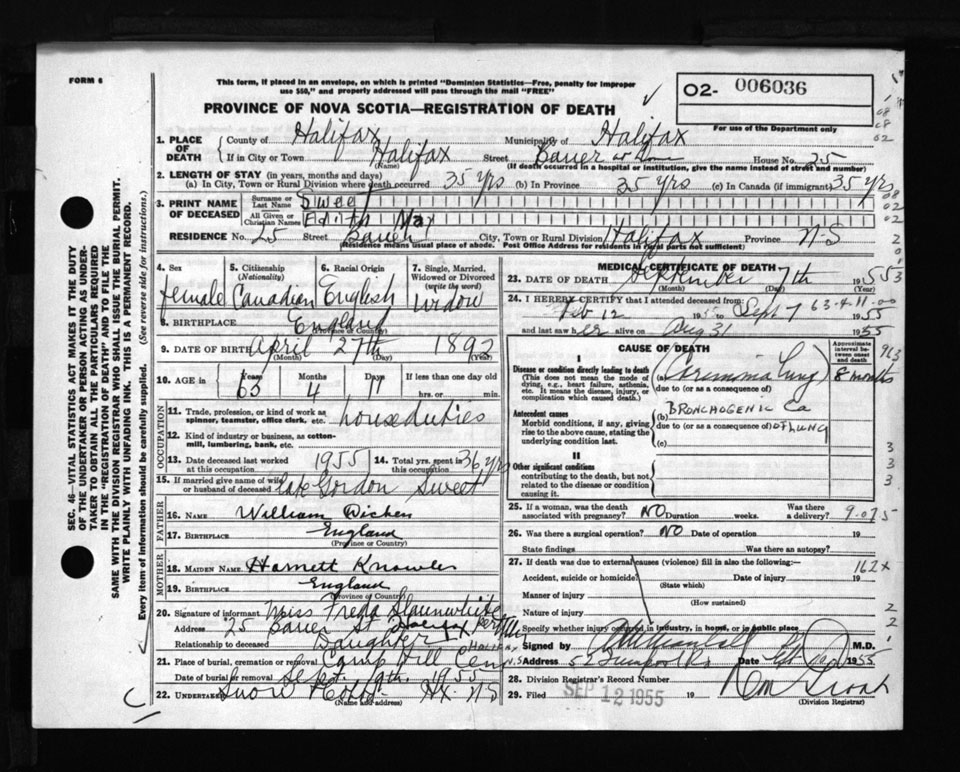 FORM 6
This form, if placed in an envelope, on which is printed "Dominion Statistics—Free, penalty for improper
use $50," and properly addressed will pass through the mail "FREE"
PROVINCE OF NOVA SCOTIA—REGISTRATION OF DEATH
O2- 006036
For use of the Department only
1. PLACE OF DEATH County of Halifax Municipality of Halifax
If in City or Town Halifax Street Bauer House No. 25
(Name) (If death occurred in a hospital or institution, give its name instead of street and number)
2. LENGTH OF STAY (in years, months and days)
(a) In City, Town or Rural Division where death occurred 35 yrs (b) In Province 35 yrs (c) In Canada (if immigrant) 35 yrs
3. PRINT NAME OF DECEASED Surname or Last Name Sweet
All Given or Christian Names Edith May
RESIDENCE No. 25 Street Bauer City, Town or Rural Division Halifax Province N-S
(Residence means usual place of abode. Post Office Address for residents in rural parts not sufficient)
4. Sex female
5. Citizenship (Nationality) Canadian
6. Racial Origin English
7. Single, Married, Widowed or Divorced (write the word) widow
8. BIRTHPLACE England
(Province or Country)
9. DATE OF BIRTH April 27th 1892
(Month) (Day) (Year)
10. AGE in Years 63 Months 4 Days 11 If less than one day old
hrs. or min.
OCCUPATION
11. Trade, profession, or kind of work as spinner, teamster, office clerk, etc. house duties
12. Kind of industry or business, as cotton-mill, lumbering, bank, etc.
13. Date deceased last worked at this occupation 1955 14. Total yrs. spent in this occupation 36 yrs
15. If married give name of wife or husband of deceased late Gordon Sweet
FATHER
16. NAME William Dicken
17. BIRTHPLACE England
(Province or Country)
MOTHER
18. MAIDEN NAME Harriett Knowles
19. BIRTHPLACE England
(Province or Country)
20. Signature of informant Miss Freda Slaunwhite
Address 25 Bauer St Halifax
Relationship to deceased Daughter
21. Place of burial, cremation or removal Camp Hill Cem HALIFAX N.S
Date of burial or removal Sept. 9th 1955
22. Undertaker Snow Hx. N.S
(Name and address)
MEDICAL CERTIFICATE OF DEATH
23. DATE OF DEATH September 7th 1955
(Month) (Day) (Year)
24. I HEREBY CERTIFY that I attended deceased from:
Feb 12 1955 to Sept 7 1955
63-4-11-00
and last saw her alive on Aug 31 1955
CAUSE OF DEATH
Approximate interval between onset and death
I
Disease or condition directly leading to death
(This does not mean the mode of dying, e.g., heart failure, asthenia, etc. It means the disease, injury, or complication which caused death.)
(a) Carcinoma Lung 8 months
due to (or as a consequence of)
Antecedent causes
Morbid conditions, if any, giving rise to the above cause, stating the underlying condition last.
(b) BRONCHOGENIC Ca
due to (or as a consequence of) of LUNG
(c)
II
Other significant conditions
contributing to the death, but not related to the disease or condition causing it.
25. If a woman, was the death associated with pregnancy? NO Duration weeks. Was there a delivery?
9-075
26. Was there a surgical operation? NO Date of operation 19
State findings Was there an autopsy?
27. If death was due to external causes (violence) fill in also the following:—
162x
Accident, suicide or homicide? Date of injury 19
(State which)
Manner of injury
(How sustained)
Nature of injury
Specify whether injury occurred in industry, in home, or in public place
Signed by M.D.
Address 52 Date 1955
28. Division Registrar's Record Number
29. Filed SEP 12 1955 19
(Division Registrar)
SEC. 46—VITAL STATISTICS ACT MAKES IT THE DUTY
OF THE UNDERTAKER OR PERSON ACTING AS UNDER-
TAKER TO OBTAIN ALL THE PARTICULARS REQUIRED
IN THE "REGISTRATION OF DEATH" AND TO FILE THE
SAME WITH THE DIVISION REGISTRAR WHO SHALL ISSUE THE BURIAL PERMIT.
WRITE PLAINLY WITH UNFADING INK. THIS IS A PERMANENT RECORD.
Every item of information should be carefully supplied. (See reverse side for instructions.)